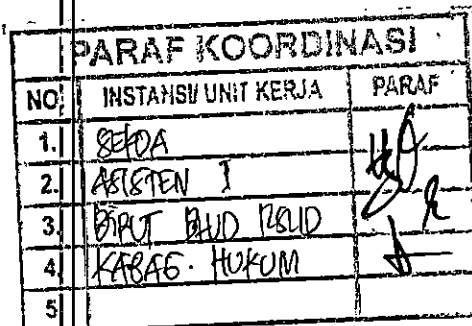 PARAF KOORDINASI
NO. INSTANSI/ UNIT KERJA PARAF
1. SEKDA
2. ASISTEN I
3. BLUD RSUD
4. KABAG. HUKUM
5